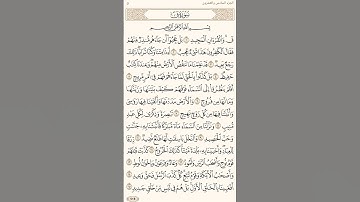 سُورَةُ قٓ
بِسْمِ ٱللَّهِ ٱلرَّحْمَٰنِ ٱلرَّحِيمِ
قٓ وَٱلْقُرْءَانِ ٱلْمَجِيدِ ١ بَلْ عَجِبُوٓا۟ أَن جَآءَهُم مُّنذِرٌ مِّنْهُمْ
فَقَالَ ٱلْكَٰفِرُونَ هَٰذَا شَىْءٌ عَجِيبٌ ٢ أَءِذَا مِتْنَا وَكُنَّا تُرَابًا ذَٰلِكَ
رَجْعٌۢ بَعِيدٌ ٣ قَدْ عَلِمْنَا مَا تَنقُصُ ٱلْأَرْضُ مِنْهُمْ وَعِندَنَا كِتَٰبٌ
حَفِيظٌۢ ٤ بَلْ كَذَّبُوا۟ بِٱلْحَقِّ لَمَّا جَآءَهُمْ فَهُمْ فِىٓ أَمْرٍ مَّرِيجٍ
٥ أَفَلَمْ يَنظُرُوٓا۟ إِلَى ٱلسَّمَآءِ فَوْقَهُمْ كَيْفَ بَنَيْنَٰهَا وَزَيَّنَّٰهَا
وَمَا لَهَا مِن فُرُوجٍ ٦ وَٱلْأَرْضَ مَدَدْنَٰهَا وَأَلْقَيْنَا فِيهَا رَوَٰسِىَ
وَأَنۢبَتْنَا فِيهَا مِن كُلِّ زَوْجٍۭ بَهِيجٍ ٧ تَبْصِرَةً وَذِكْرَىٰ لِكُلِّ عَبْدٍ
مُّنِيبٍ ٨ وَنَزَّلْنَا مِنَ ٱلسَّمَآءِ مَآءً مُّبَٰرَكًا فَأَنۢبَتْنَا بِهِۦ جَنَّٰتٍ
وَحَبَّ ٱلْحَصِيدِ ٩ وَٱلنَّخْلَ بَاسِقَٰتٍ لَّهَا طَلْعٌ نَّضِيدٌ ١٠ رِّزْقًا
لِّلْعِبَادِ وَأَحْيَيْنَا بِهِۦ بَلْدَةً مَّيْتًا كَذَٰلِكَ ٱلْخُرُوجُ ١١ كَذَّبَتْ قَبْلَهُمْ
قَوْمُ نُوحٍ وَأَصْحَٰبُ ٱلرَّسِّ وَثَمُودُ ١٢ وَعَادٌ وَفِرْعَوْنُ وَإِخْوَٰنُ لُوطٍ
١٣ وَأَصْحَٰبُ ٱلْأَيْكَةِ وَقَوْمُ تُبَّعٍ كُلٌّ كَذَّبَ ٱلرُّسُلَ فَحَقَّ وَعِيدِ ١٤
أَفَعَيِينَا بِٱلْخَلْقِ ٱلْأَوَّلِ بَلْ هُمْ فِى لَبْسٍ مِّنْ خَلْقٍ جَدِيدٍ ١٥